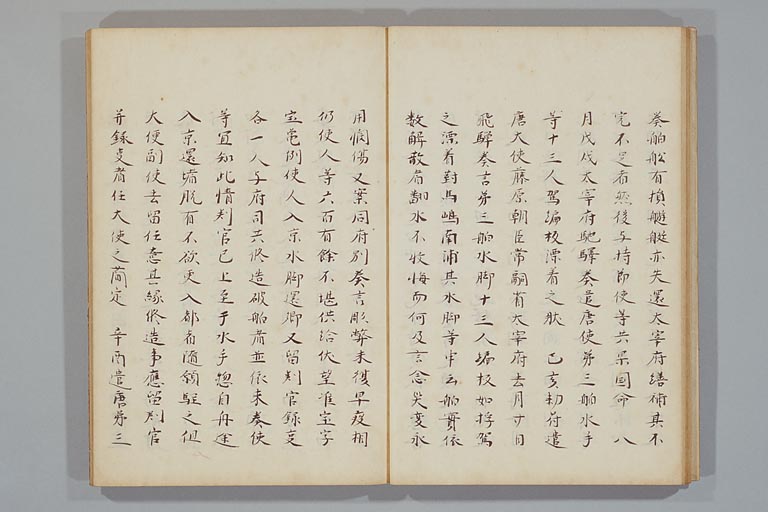 奏舶舩有損艇艇亦失還太宰府繕術其不
完不足者然後与持節使等共果國命 八
月戊戌太宰府馳驛奏遣唐使苐三舶水手
等十三人駕編板漂着之狀 己亥勅符遣
唐大使藤原朝臣常嗣省太宰府去月廿日
飛驛奏言苐三舶水脚十三人編板如桴駕
之漂着對馬嶋南浦其水脚等申云舶實依
数解散者翻水不收悔而何及言念災変永
用惻傷又案同府別奏言彫弊未復旱疫相
仍使人等六百有餘不堪供給伏望准宝字
宝亀例使人入京水脚還卿又留判官録事
各一人与府司共修造破舶者並依来奏使
等宜知此情判官已上至于水手惣自舟途
入京還堵脱有不欲更入都者随願駐之但
大使副使去留任意其縁修造事應留判官
并録事者任大使之簡定 辛酉遣唐苐三